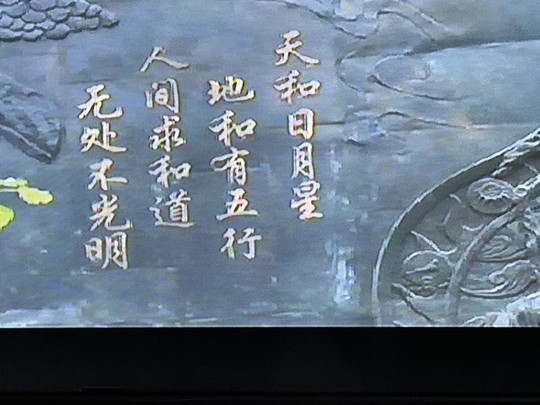 天和日月星
地和有五行
人间求和道
无处不光明